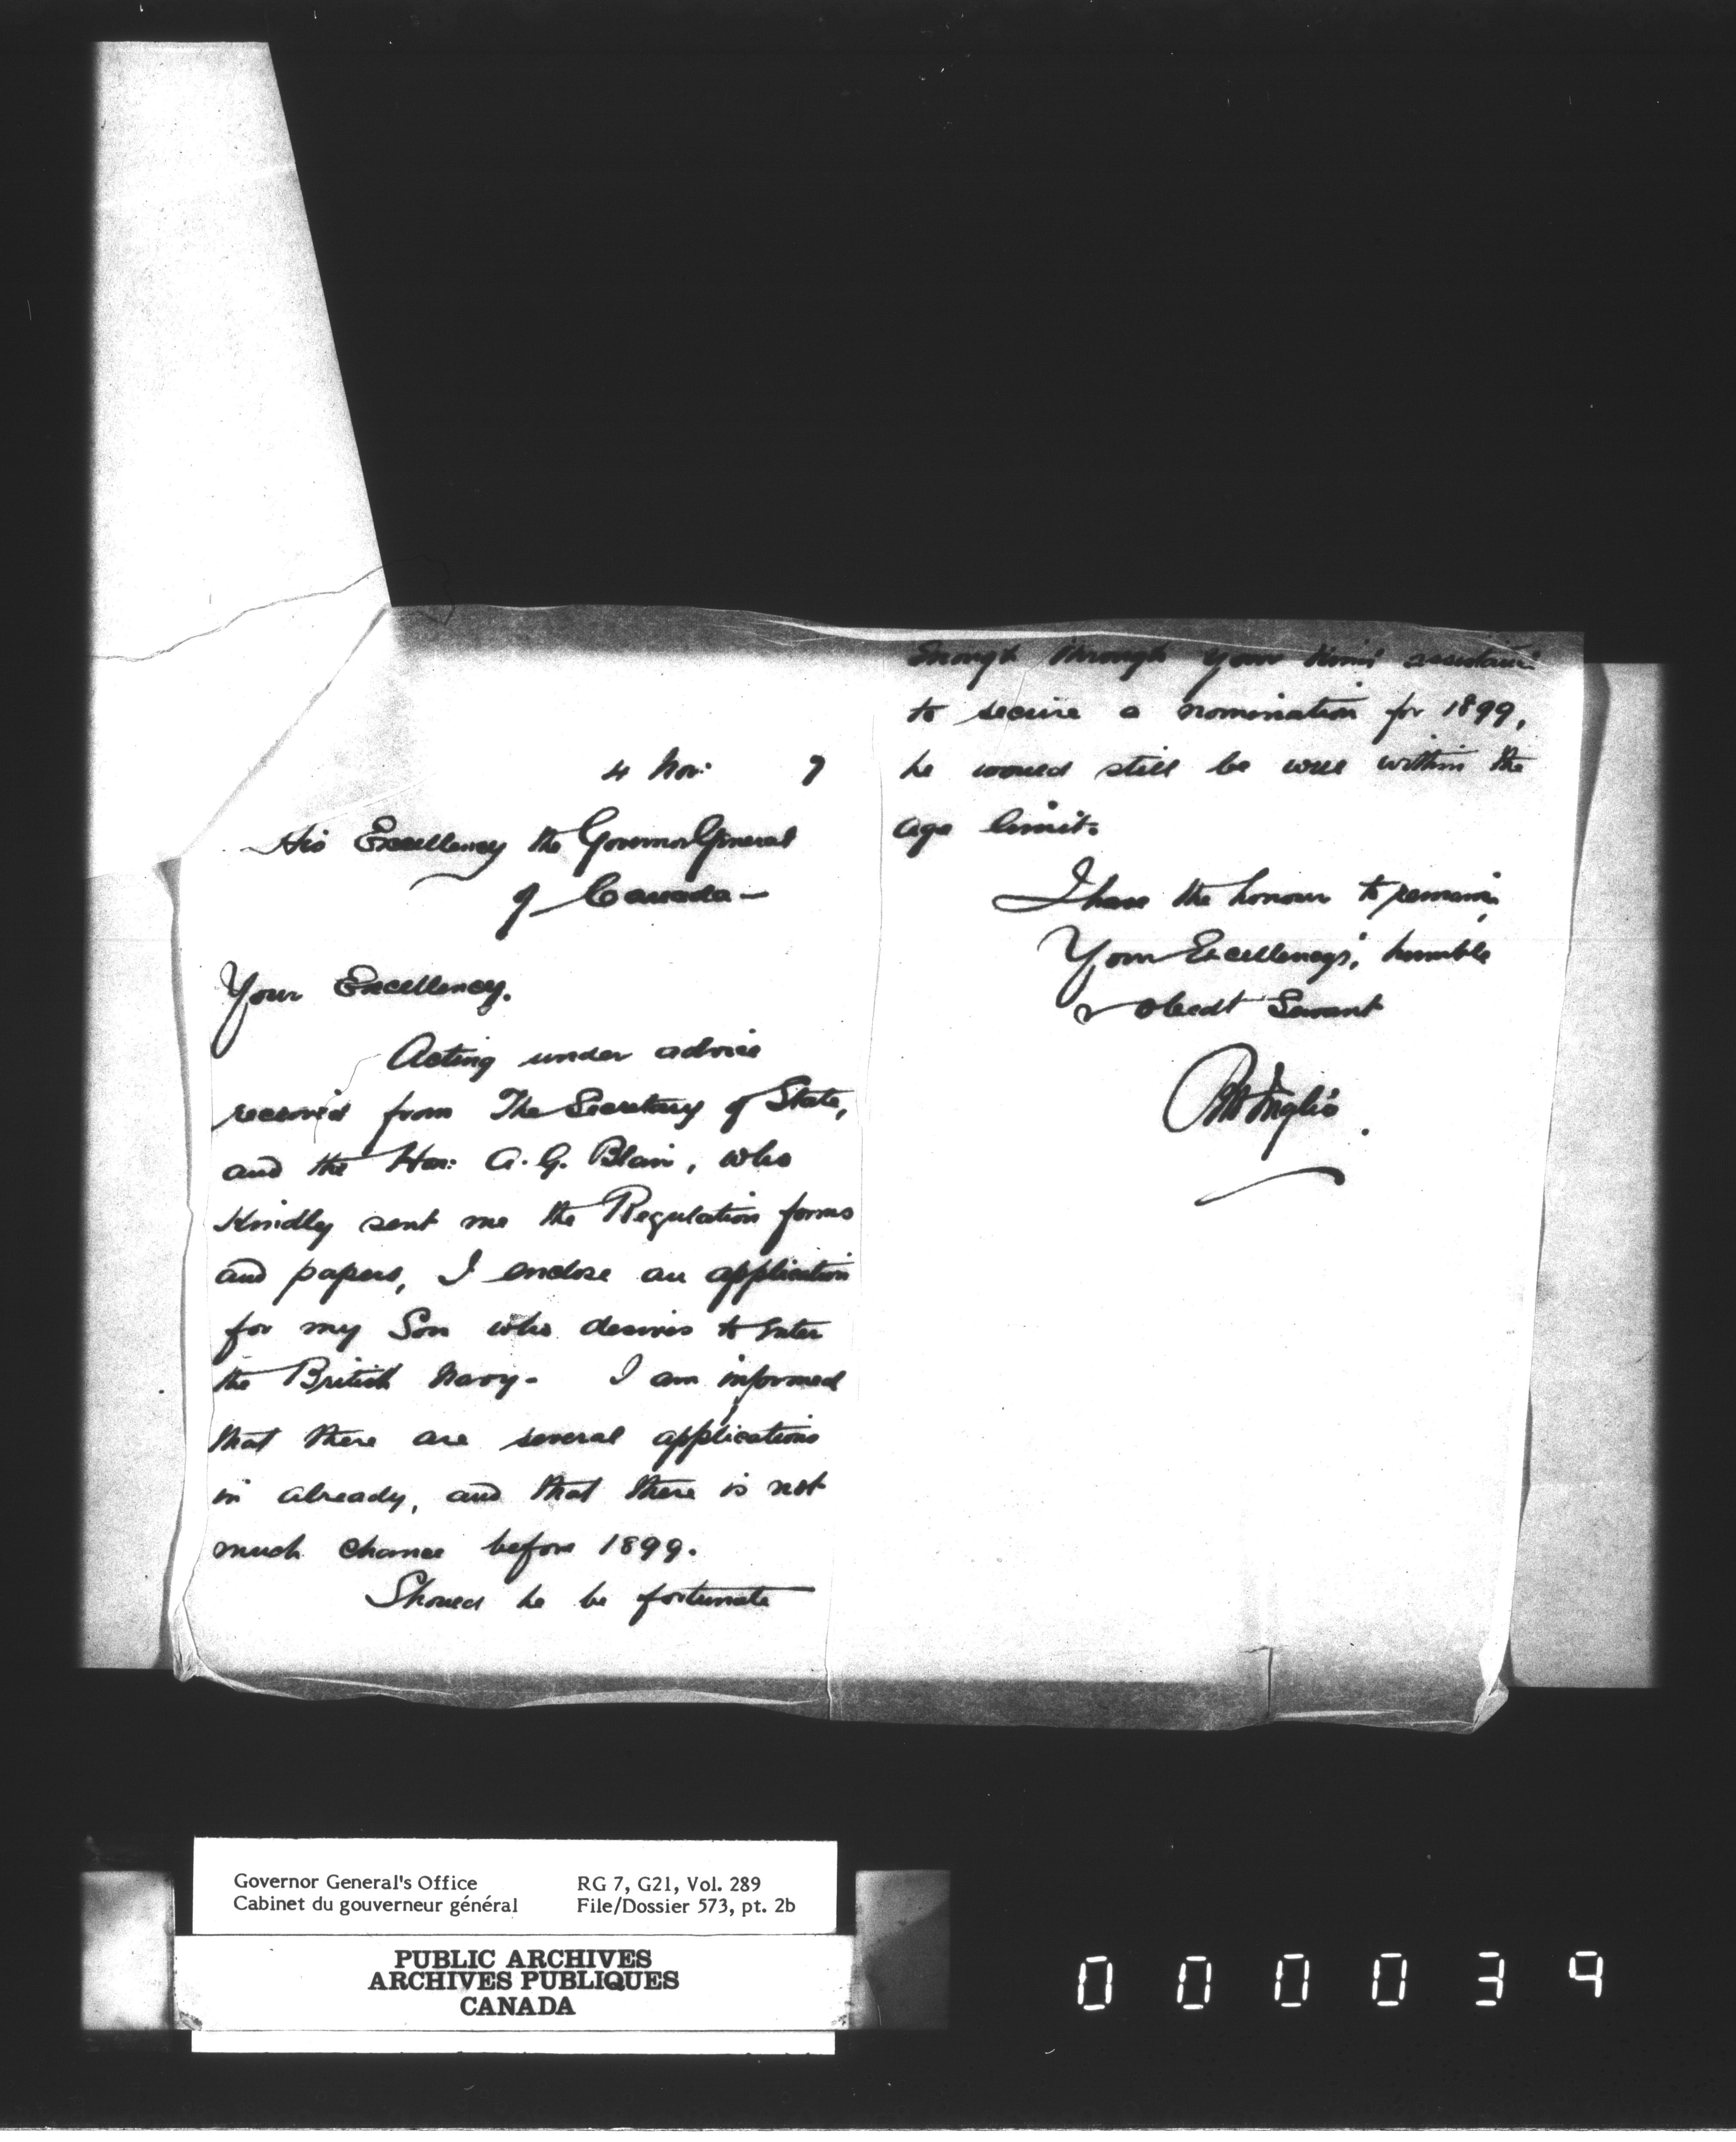 4 Nov: 7
His Excellency the Governor General
of Canada —
Your Excellency.
Acting under advice
received from The Secretary of State,
and the Hon: A. G. Blair, who
kindly sent me the Regulation forms
and papers, I enclose an application
for my Son who desires to enter
the British Navy - I am informed
that there are several applications
in already, and that there is not
much chance before 1899.
Should he be fortunate
enough through your kind assistance
to secure a nomination for 1899,
he would still be well within the
age limit.
I have the honour to remain,
Your Excellencys', humble
& obedt Servant
Inglis.
Governor General's Office
Cabinet du gouverneur général
RG 7, G21, Vol. 289
File/Dossier 573, pt. 2b
PUBLIC ARCHIVES
ARCHIVES PUBLIQUES
CANADA
000039